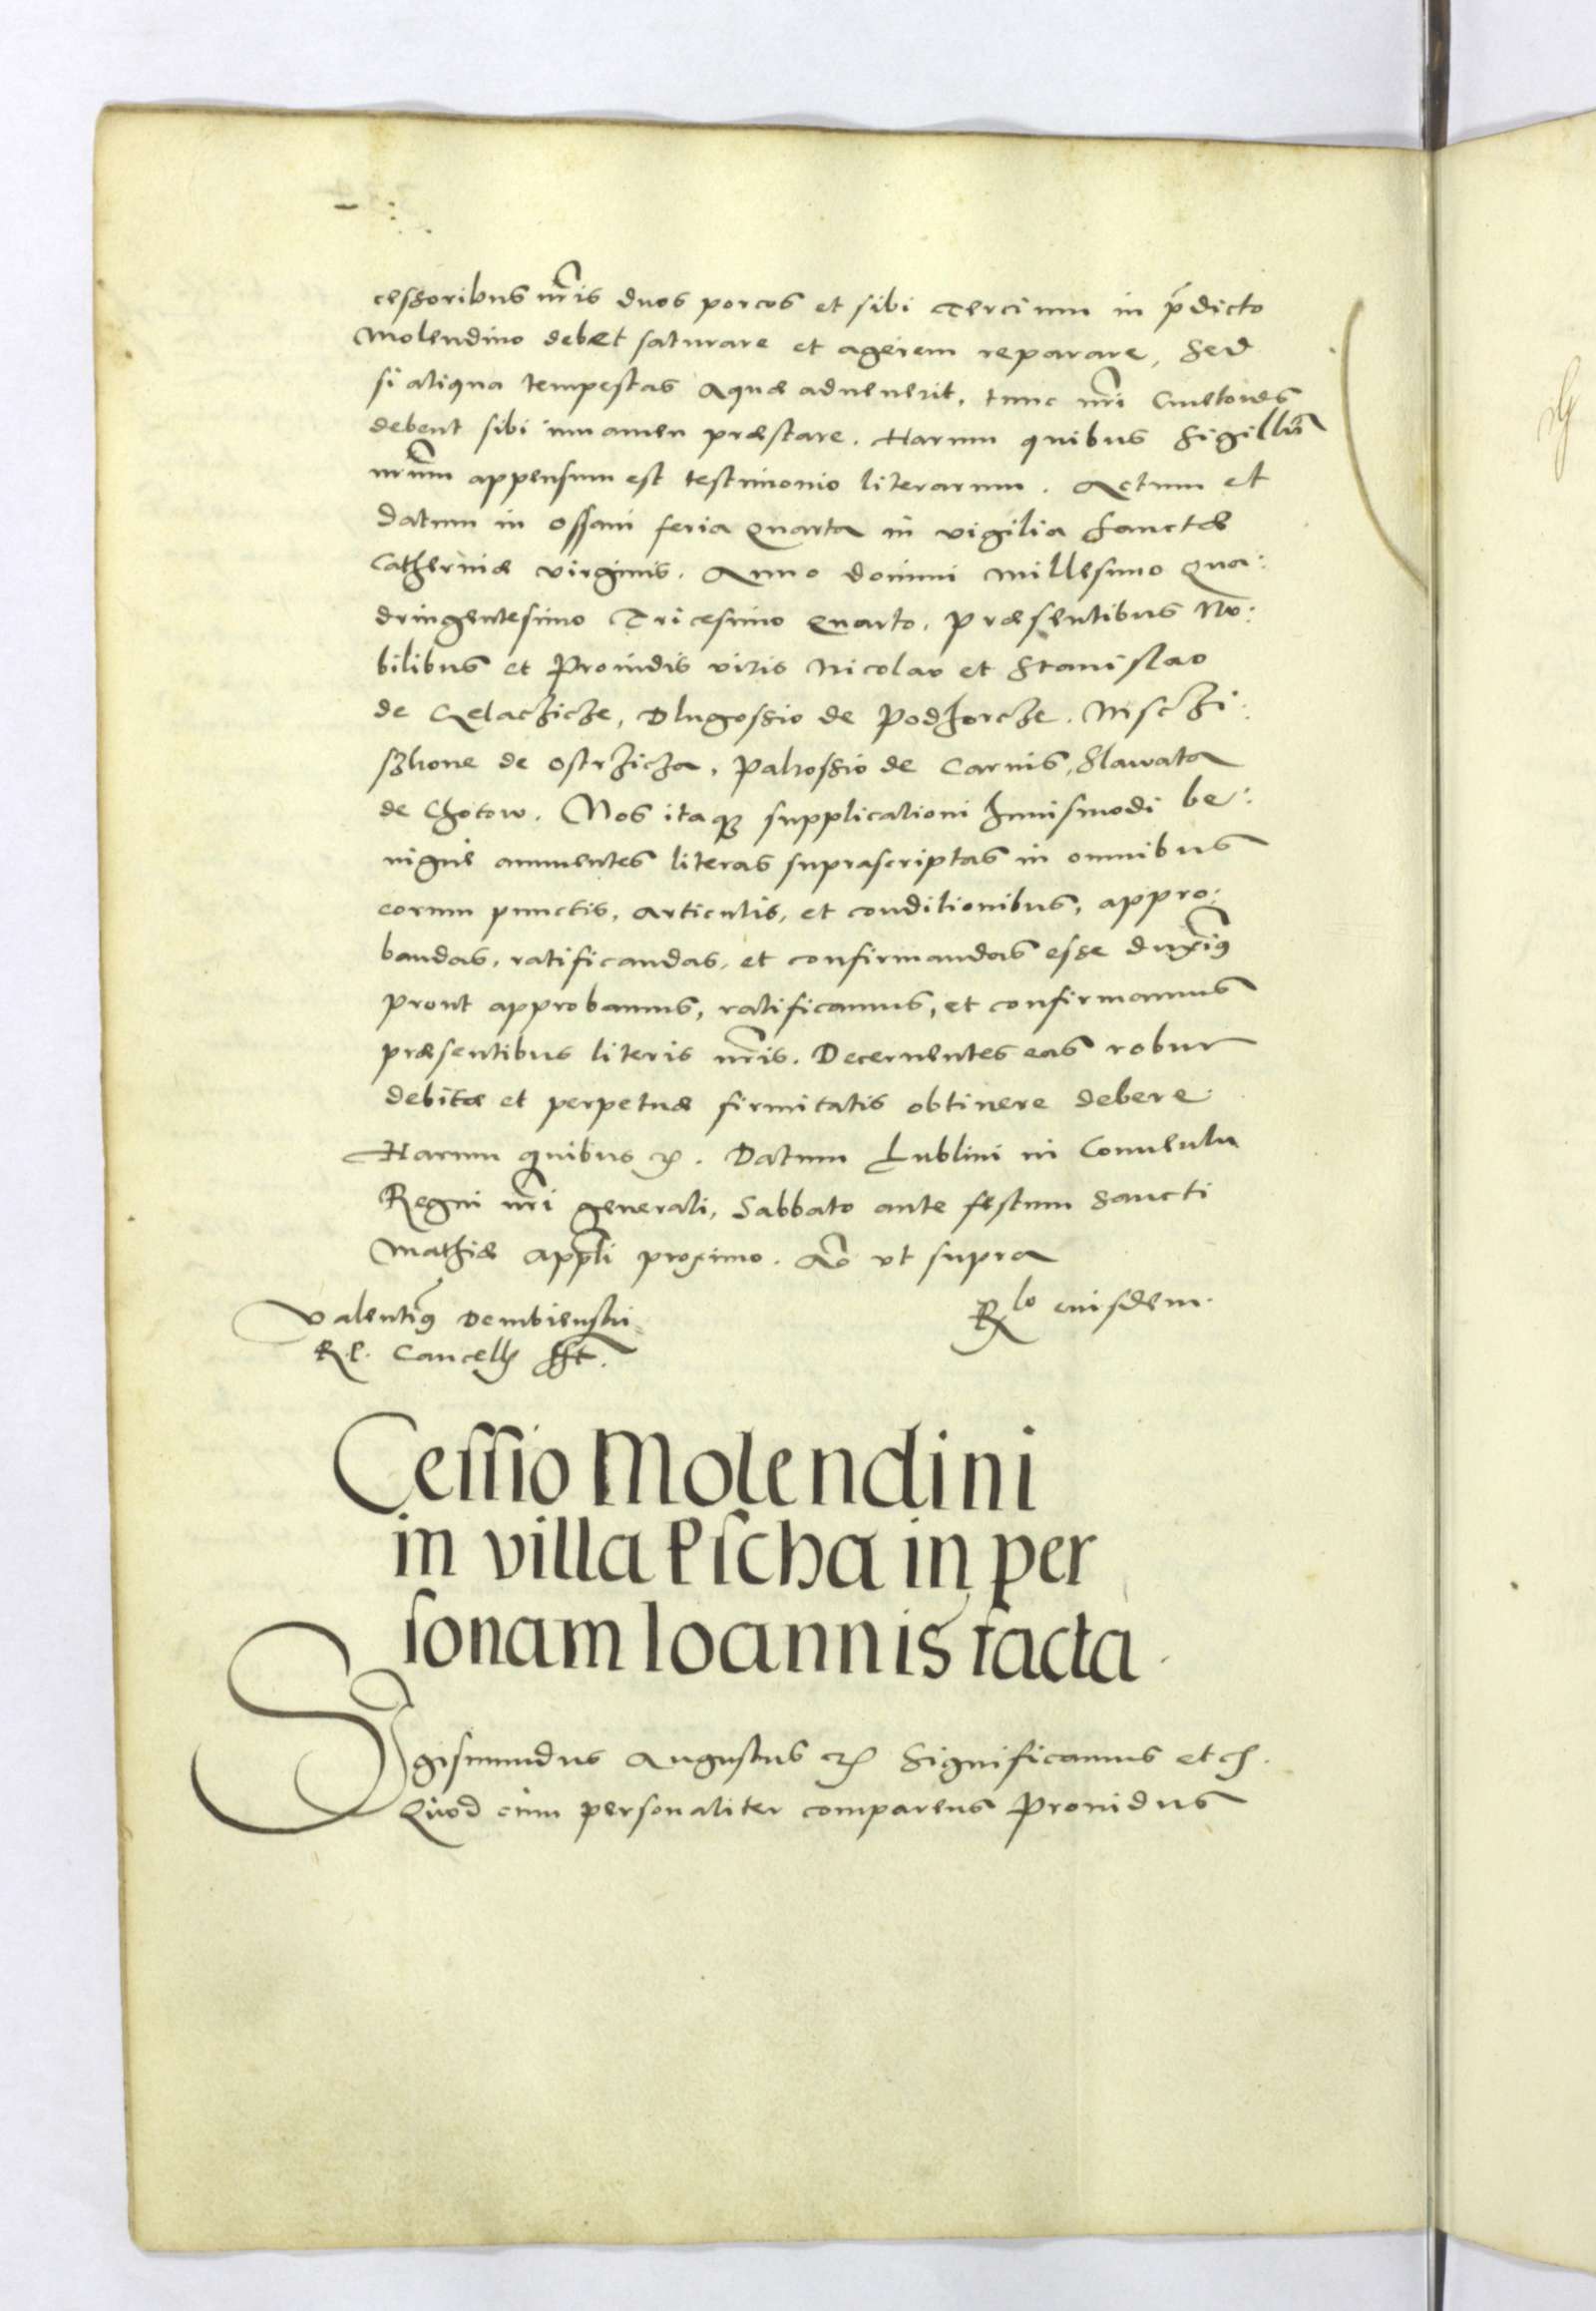 cessoribus nr̃is duos porcos et sibi Tercium in p̃dicto
Molendino debet saturare et agerem reparare, Sed
si aliqua tempestas Aquæ aduenerit, tunc nr̃i Cmetones
debent sibi iuuamen præstare. Harum quibus Sigillũ
nr̃um appensum est testimonio literarum. Actum et
datum in Ossani feria Quarta in vigilia Sanctæ
Catherinæ virginis. Anno domini Millesimo Qua:
dringentesimo Tricesimo Quarto. Præsentibus No:
bilibus et Prouidis viris Nicolao et Stanislao
de Celachiche, Dlugossio de Podhorcze. Msczi:
sshone de Ostrzicza, Palrossio de Carnis, Slawata
de Chotow. Nos itaq₃ supplicationi huiusmodi be:
nigne annuentes literas suprascriptas in omnibus
eorum punctis, articulis, et conditionibus, appro:
bandas, ratificandas, et confirmandas esse duximꝯ
prout approbamus, ratificamus, et confirmamus
præsentibus literis nr̃is. Decernentes eas robur
debitæ et perpetuæ firmitatis obtinere debere.
Harum quibus ꝛc. Datum Lublini in Conuentu
Regni nr̃i generali, Sabbato ante festum Sancti
Mathiæ app̃li proximo. Aõ vt supra
Valentiꝯ Dembienski
Rlo eiusdem.
R. P. Cancell̃ sst.
Cessio Molendini
in villa Pscha in per
sonam Ioannis facta.
Sigismundus Augustus ꝛc Significamus etc̃.
Quod cum personaliter comparens Prouidus